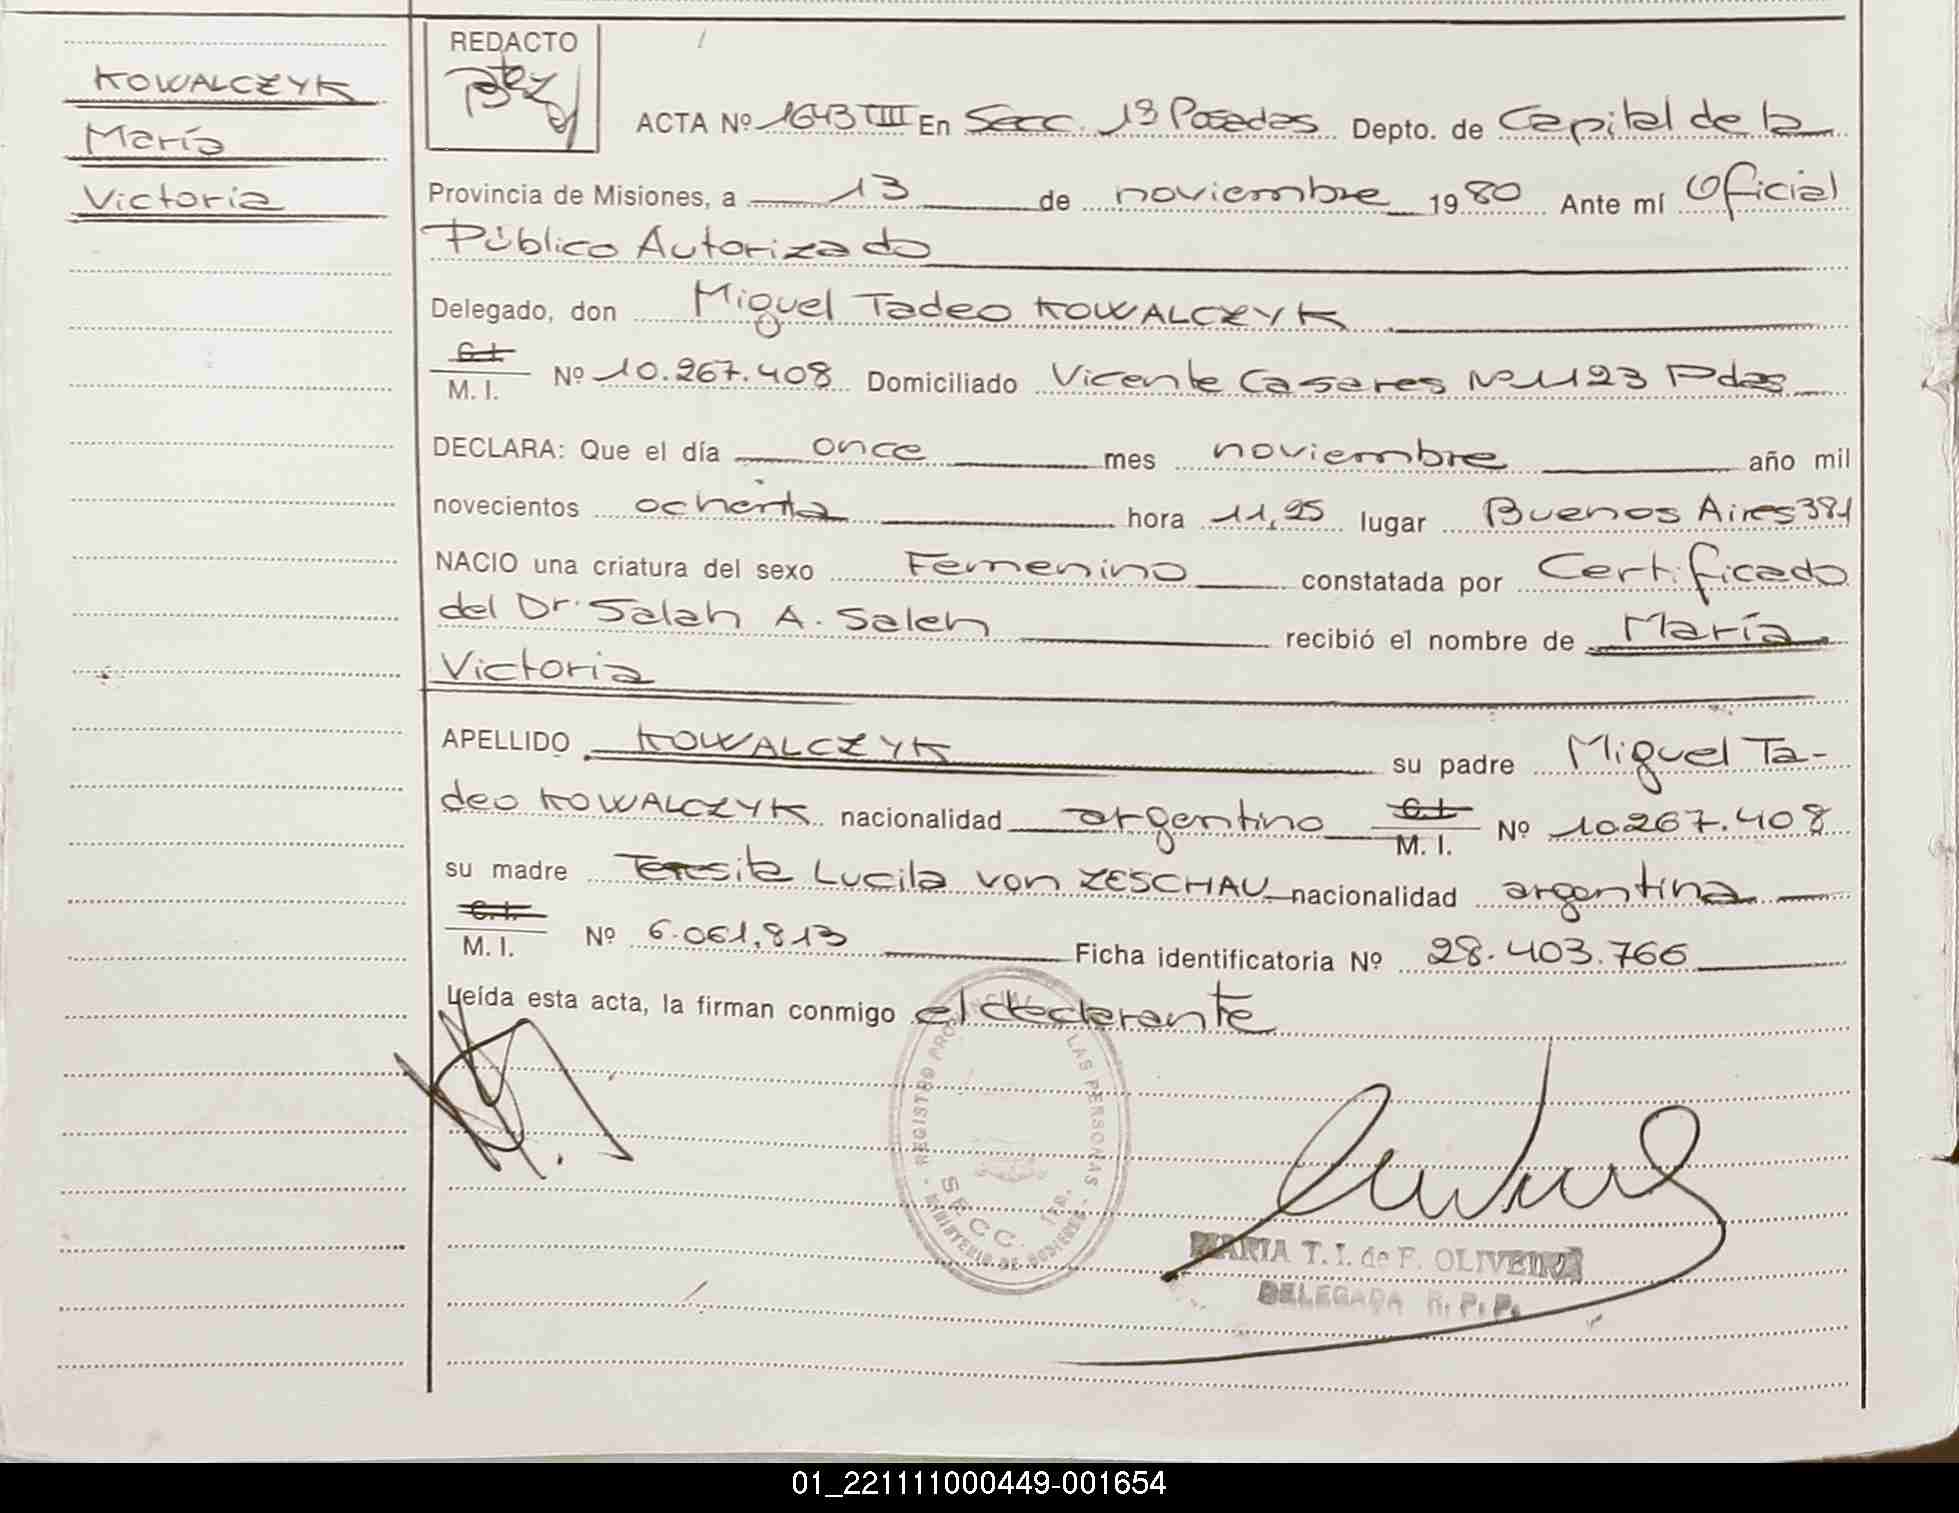 KOWALCZYK
María
Victoria
REDACTO
ACTA Nº 1643 TIII En Secc. 1ª Posadas Depto. de Capital de la
Provincia de Misiones, a 13 de noviembre 1980 Ante mí Oficial
Público Autorizado
Delegado, don Miguel Tadeo KOWALCZYK
C.I.
M. I. Nº 10.267.408 Domiciliado Vicente Casares Nº 1123 Pdas
DECLARA: Que el día once mes noviembre año mil
novecientos ochenta hora 11,25 lugar Buenos Aires 381
NACIO una criatura del sexo Femenino constatada por Certificado
del Dr. Salah A. Saleh recibió el nombre de María
Victoria
APELLIDO KOWALCZYK su padre Miguel Ta-
deo KOWALCZYK nacionalidad argentino C.I. M. I. Nº 10.267.408
su madre Teresita Lucila von ZESCHAU nacionalidad argentina
C.I.
M. I. Nº 6.061.813 Ficha identificatoria Nº 28.403.766
Leída esta acta, la firman conmigo el declarante
REGISTRO PROVINCIAL DE LAS PERSONAS - MINISTERIO DE GOBIERNO -
SECC. 1RA.
MARIA T. I. de F. OLIVEIRA
DELEGADA R. P. P.
01_221111000449-001654